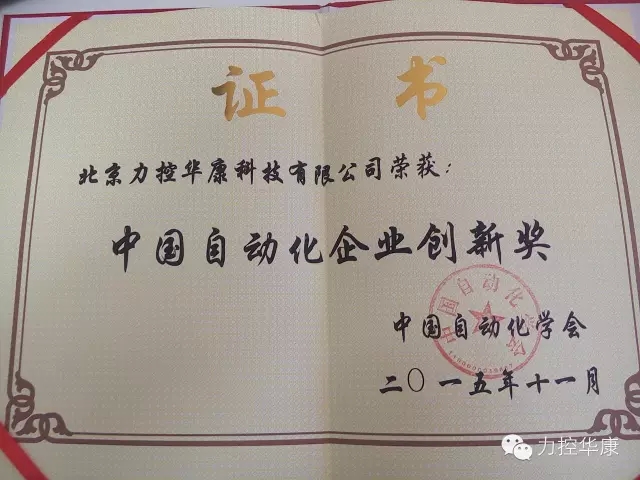 证书
北京力控华康科技有限公司荣获：
中国自动化企业创新奖
中国自动化学会
二〇一五年十一月
力控华康